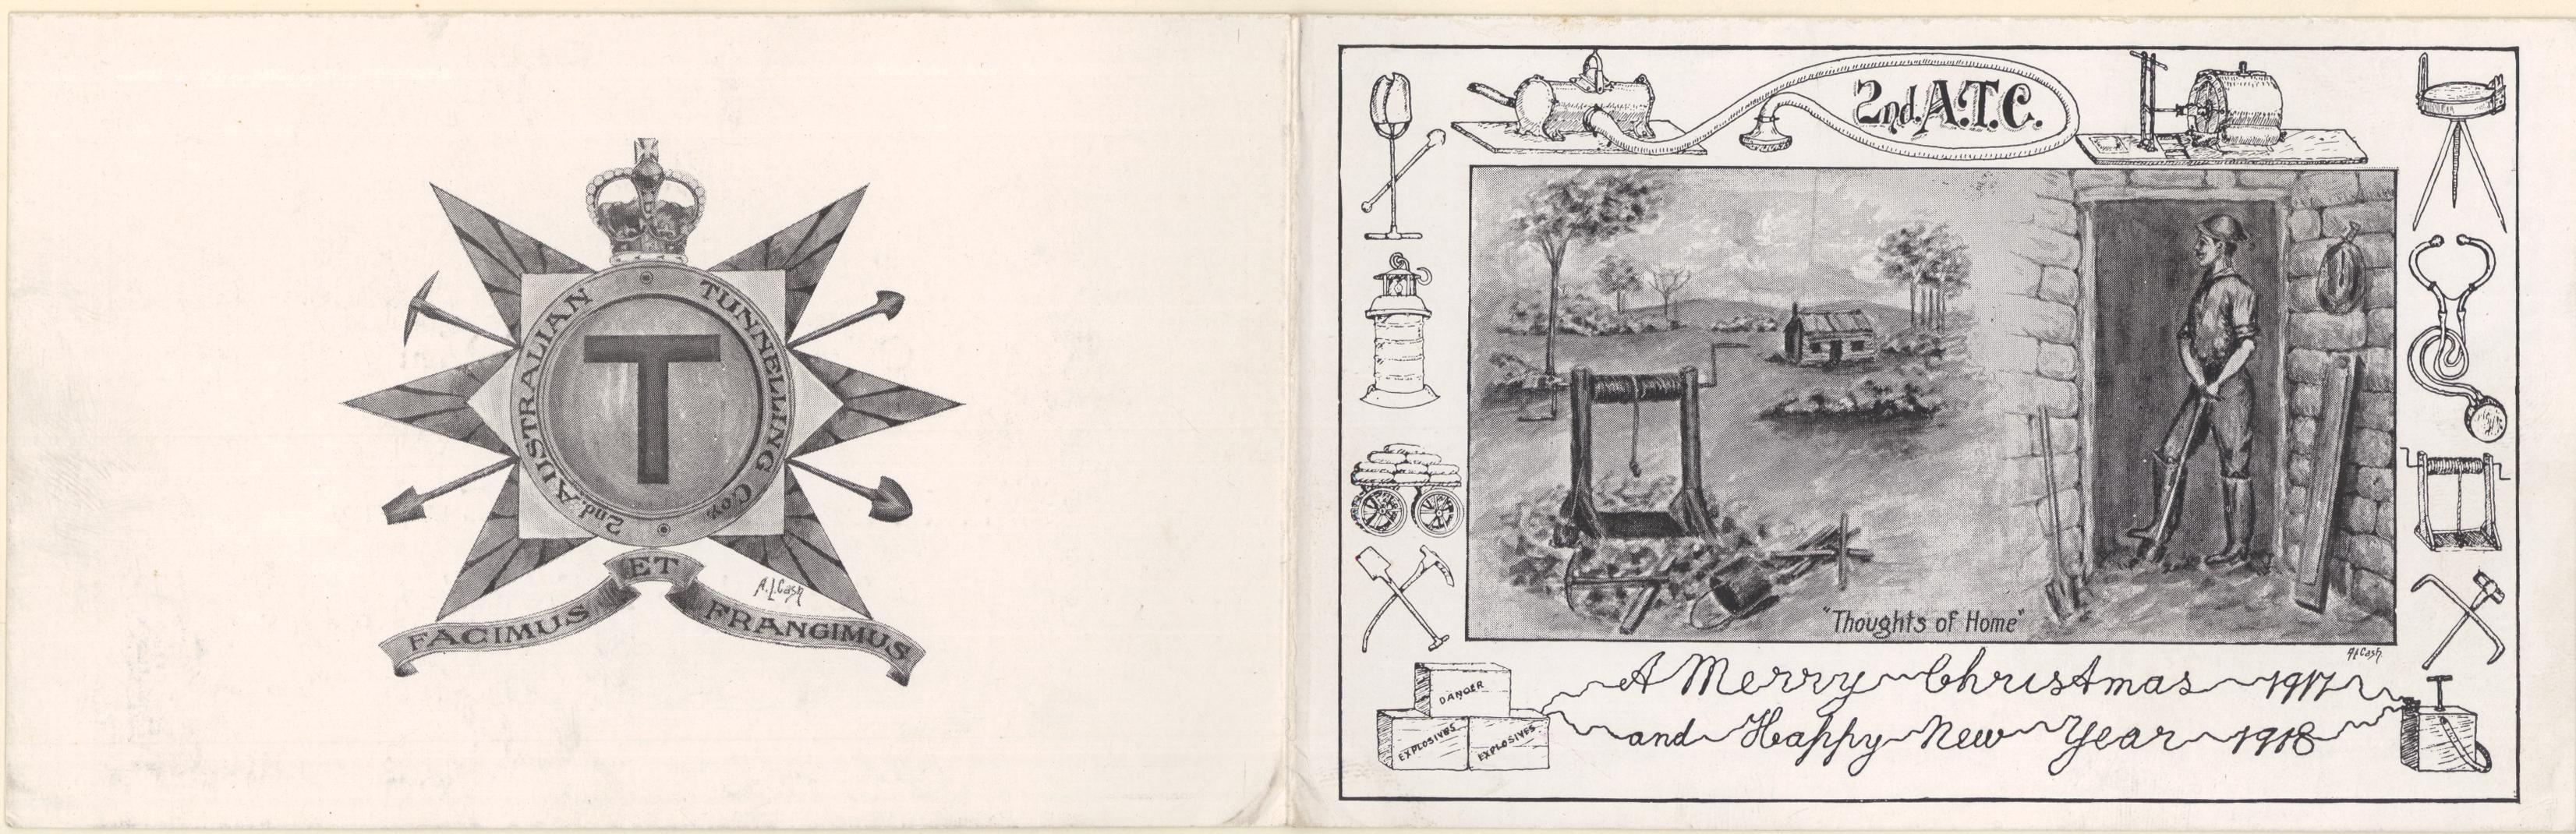 2nd. AUSTRALIAN TUNNELLING Coy.
T
FACIMUS ET FRANGIMUS
A.L.Cash
2nd. A.T.C.
"Thoughts of Home"
A.L.Cash.
A Merry Christmas 1917
and Happy New Year 1918
DANGER
EXPLOSIVES
EXPLOSIVES